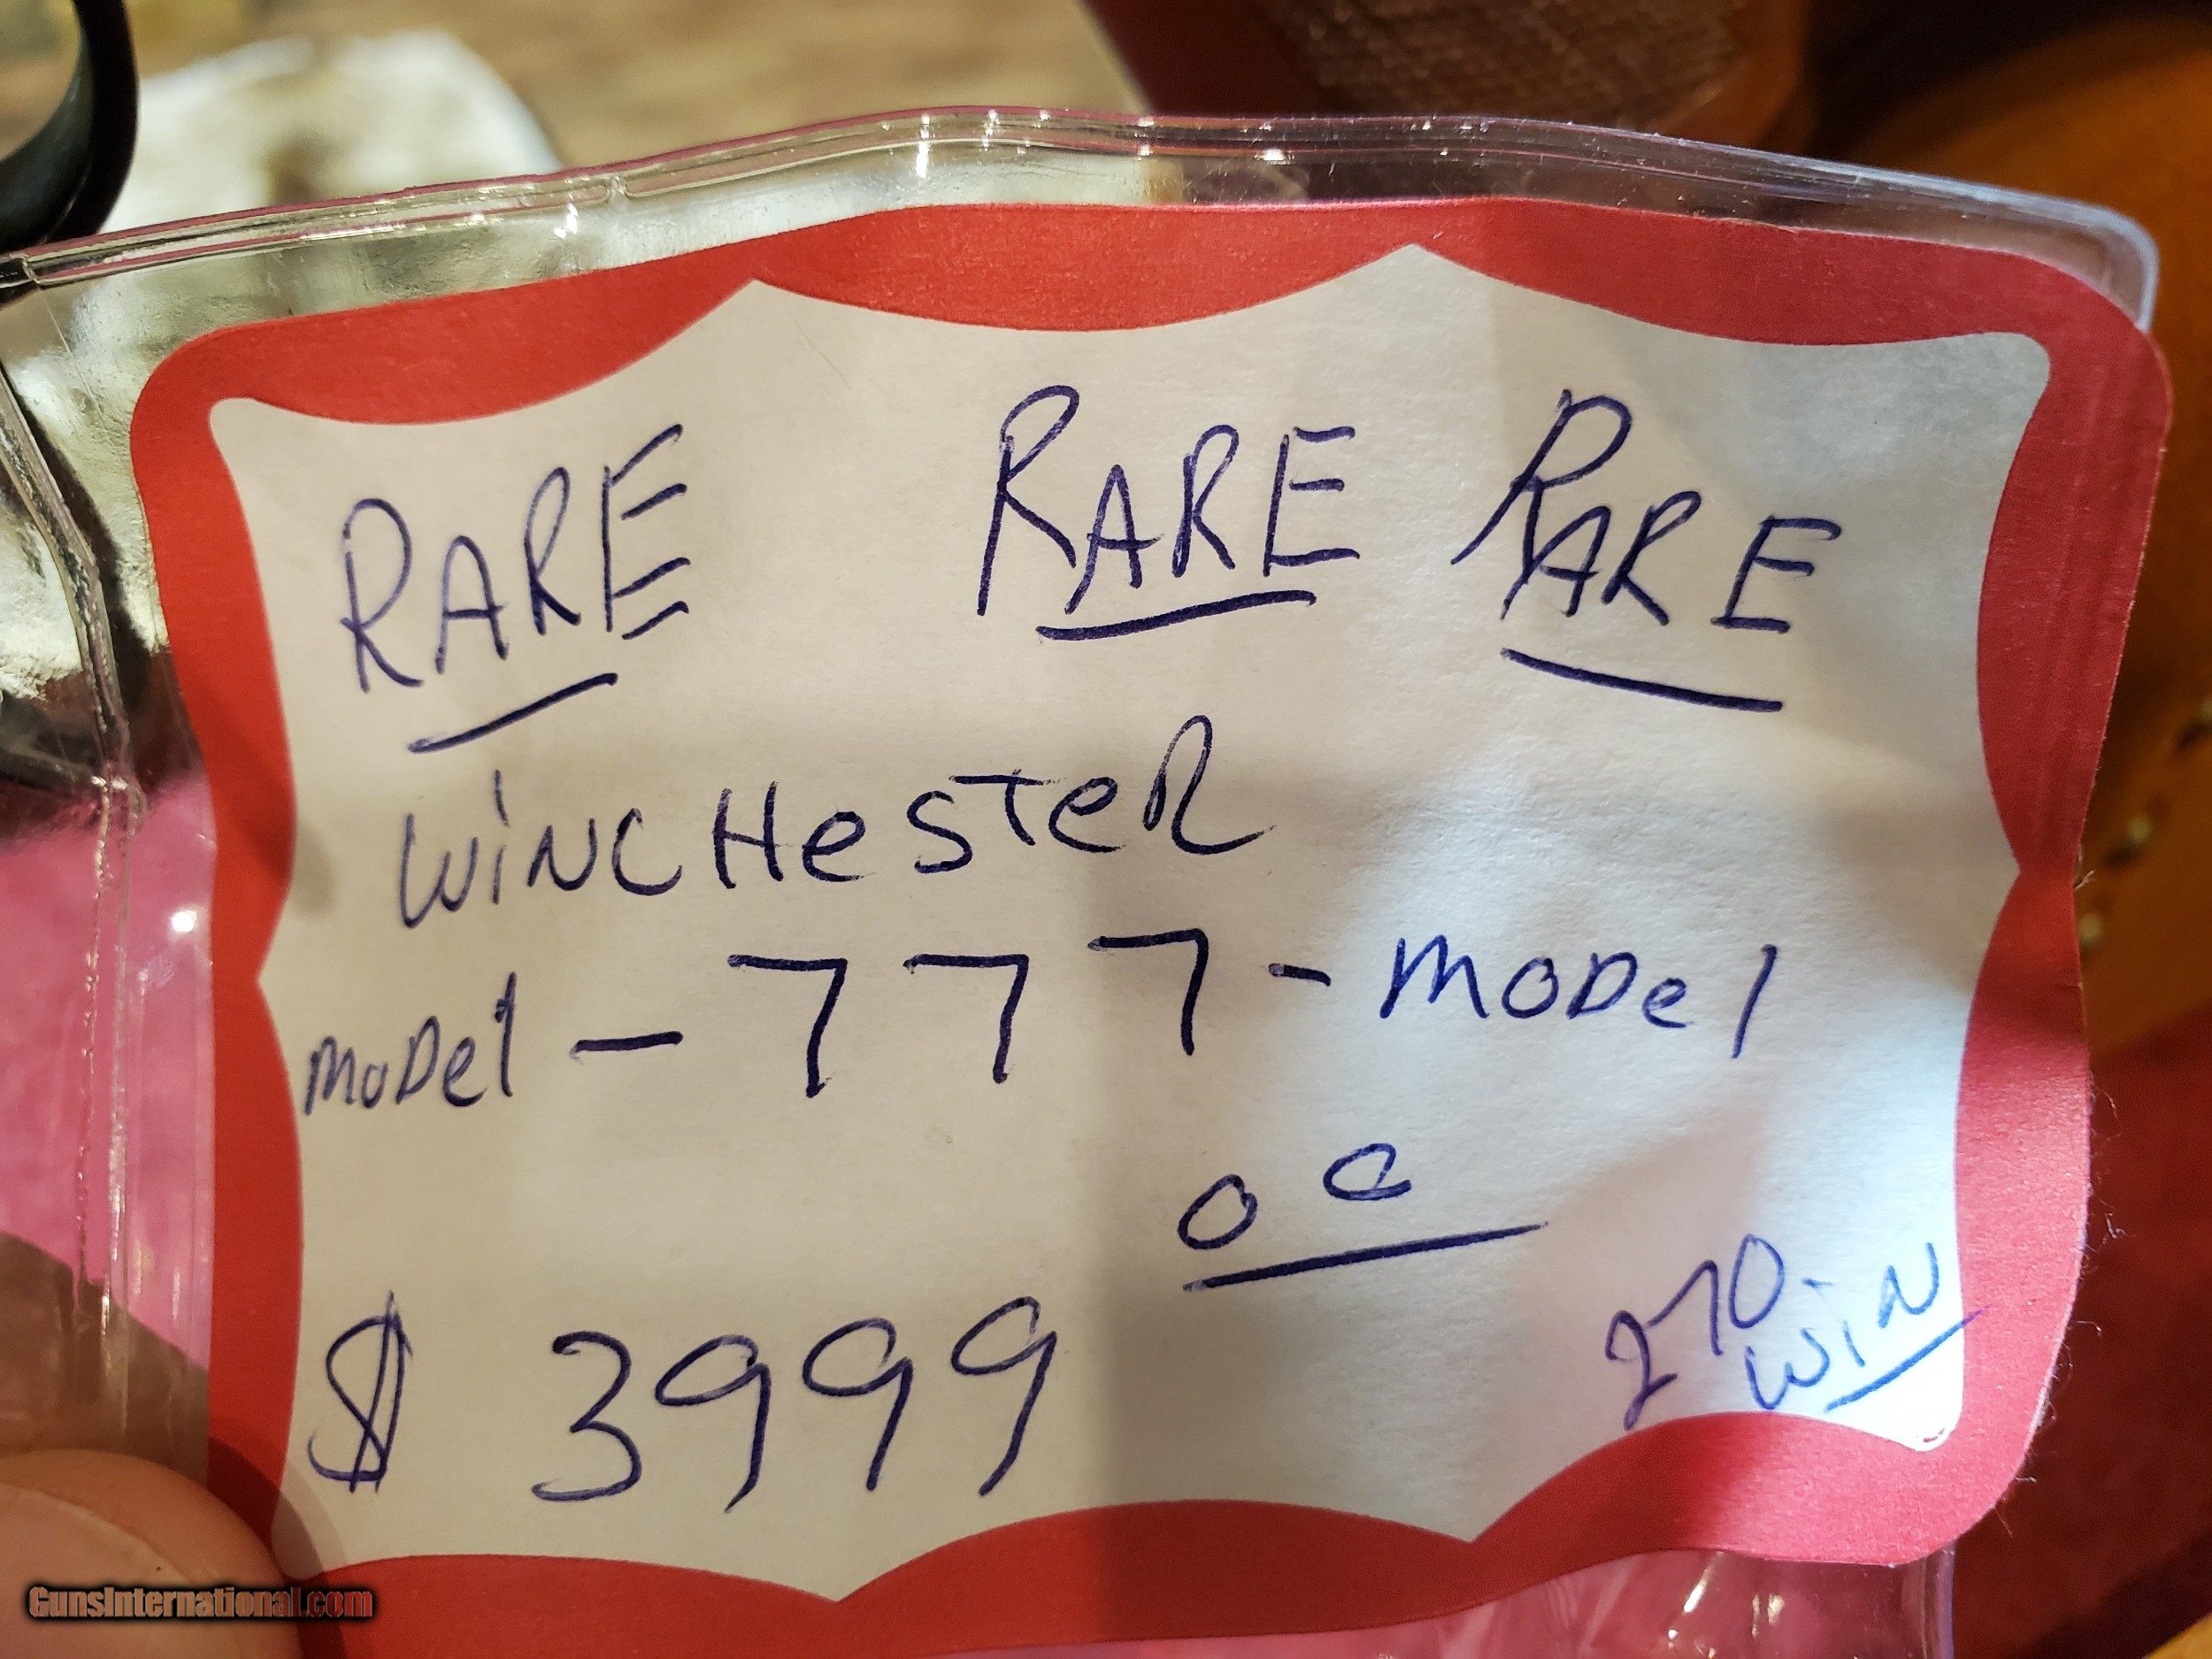 RARE RARE RARE
WiNCHeSTeR
MoDel - 777 - MODel
$ 3999 00
270
WiN
GunsInternational.com